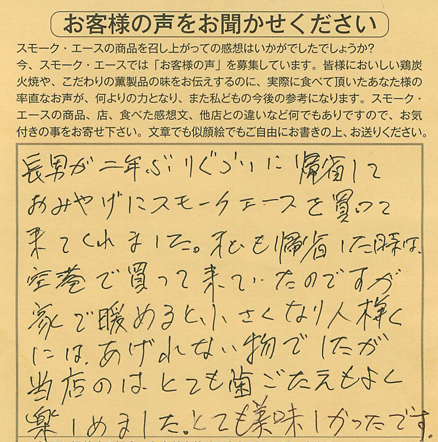 お客様の声をお聞かせください
スモーク・エースの商品を召し上がっての感想はいかがでしたでしょうか?
今、スモーク・エースでは「お客様の声」を募集しています。皆様においしい鶏炭
火焼や、こだわりの薫製品の味をお伝えするのに、実際に食べて頂いたあなた様の
率直なお声が、何よりの力となり、また私どもの今後の参考になります。スモーク・
エースの商品、店、食べた感想文、他店との違いなど何でもありですので、お気
付きの事をお寄せ下さい。文章でも似顔絵でもご自由にお書きの上、お送りください。
長男が二年ぶりぐらいに帰省して
おみやげにスモークエースを買って
来てくれました。私も帰省した時は、
空港で買って来ていたのですが
家で暖めると小さくなり人様に
には、あげれない物でしたが
当店のは、とても歯ごたえもよく
楽しめました。とても美味しかったです。